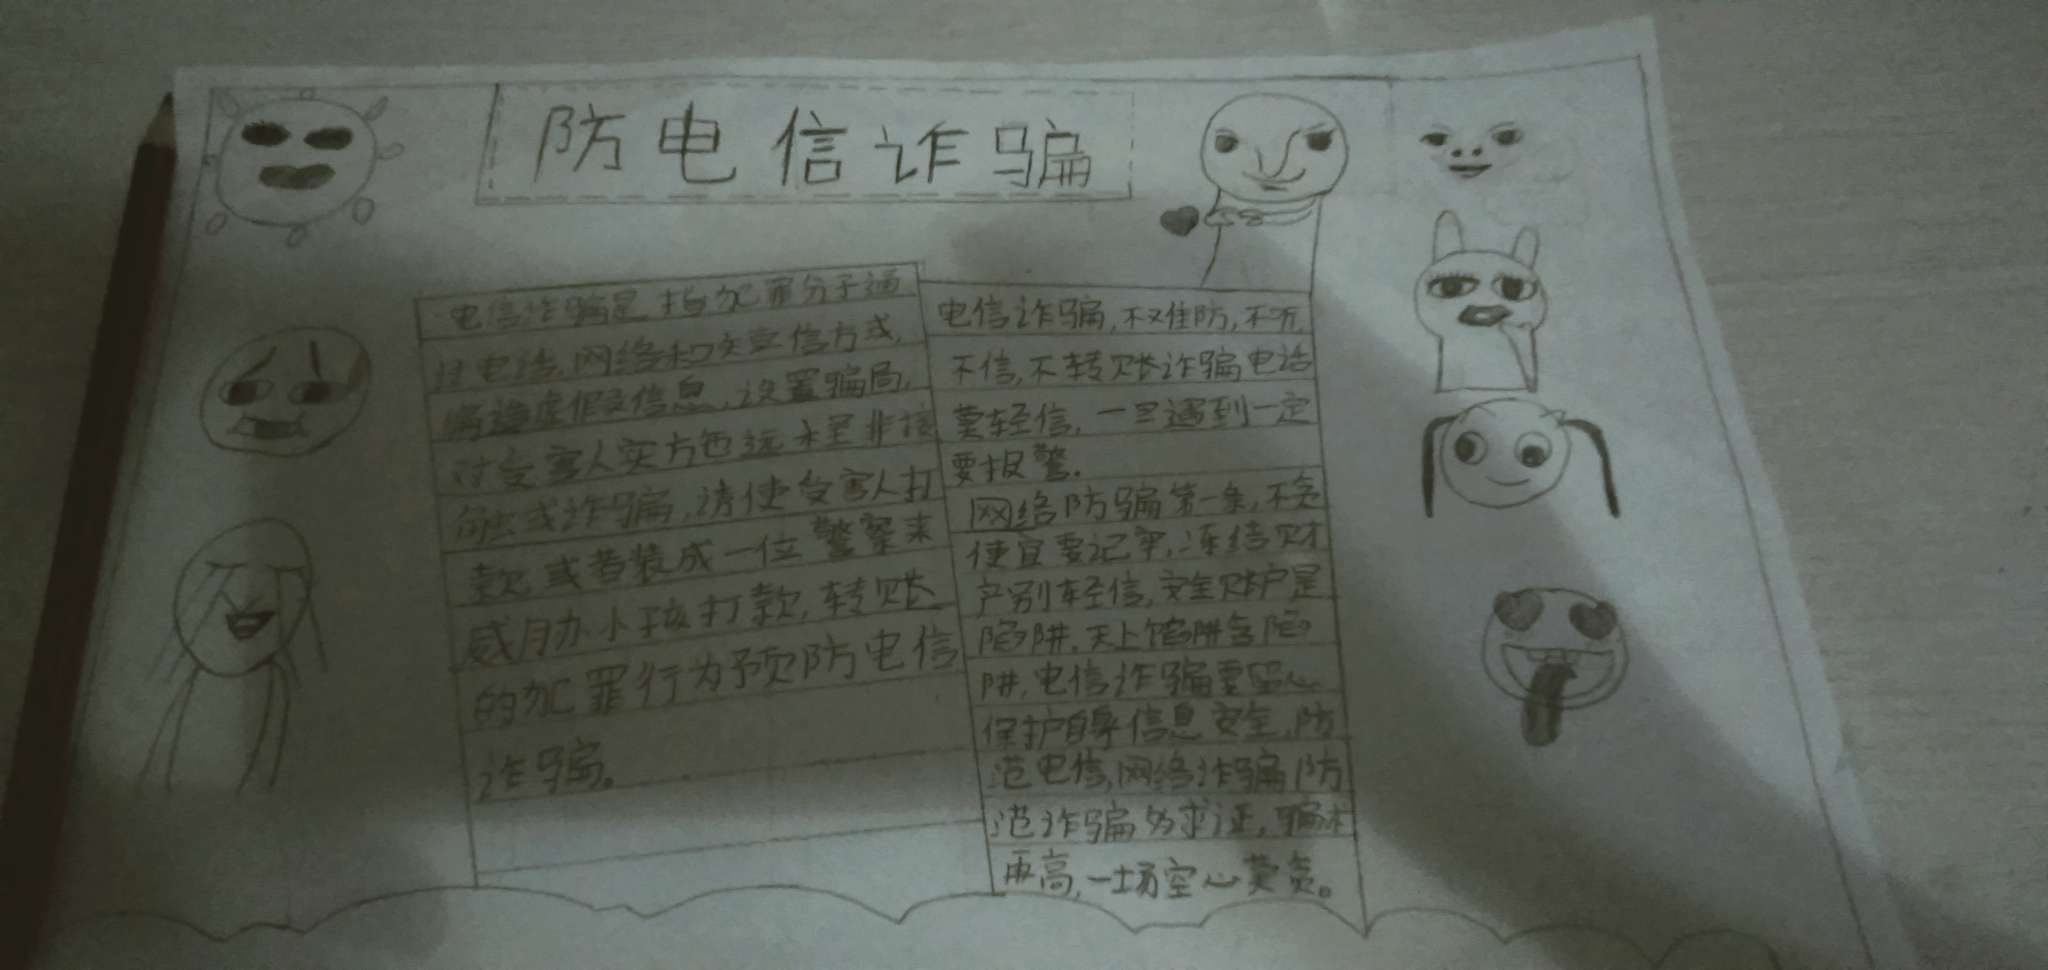 防电信诈骗
电信诈骗是指犯罪分子通
过电话,网络和短信方式,
编造虚假信息,设置骗局,
对受害人实方色远程非接
触或诈骗,请使受害人打
款,或者装成一位警察来
威月办小孩打款,转账
的犯罪行为预防电信
诈骗。
电信诈骗,不又佳防,不听,
不信,不转账诈骗电话
莫轻信,一旦遇到一定
要报警.
网络防骗第一条,不贪
便宜要记牢,冻结财
产别轻信,安全账户是
陷阱,天上馅阱含陷
阱,电信诈骗要留心
保护自身信息安全,防
范电信,网络诈骗防
范诈骗多求证,骗术
再高,一场空心莫贪。